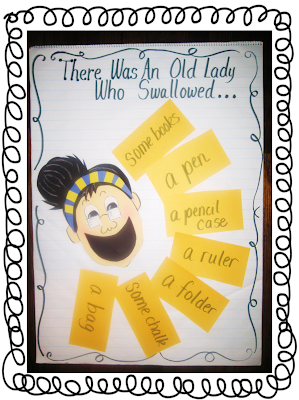 There Was An Old Lady
Who Swallowed...
some books
a pen
a pencil
case
a ruler
a folder
some chalk
a bag